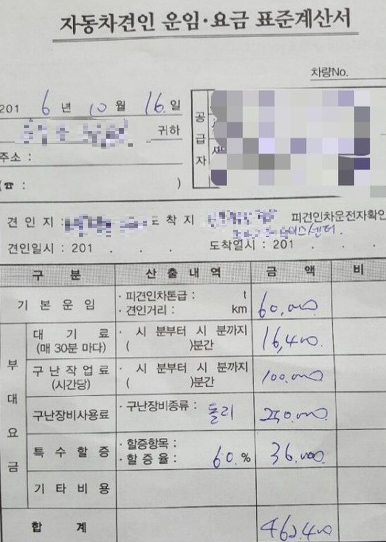 자동차견인 운임·요금 표준계산서
차량No.
2016년 10월 16.일
귀하
공급자
주소 :
(☎ : )
견 인 지 도 착 지 피견인차운전자확인
견인일시 : 201 . . 도착일시 : 201 . .
구 분 산 출 내 역 금 액 비
기 본 운 임 · 피견인차톤급 : t 60,000
· 견인거리 : km
부대요금
대 기 료 시 분부터 시 분까지 16,400
(매 30분 마다) ( )분간
구난작업료 시 분부터 시 분까지 100,000
(시간당) ( )분간
구난장비사용료 · 구난장비종류 : 돌리 250,000
특 수 할 증 · 할증항목 :
· 할 증 율 : 60. % 36,000
기 타 비 용
합 계 462,400